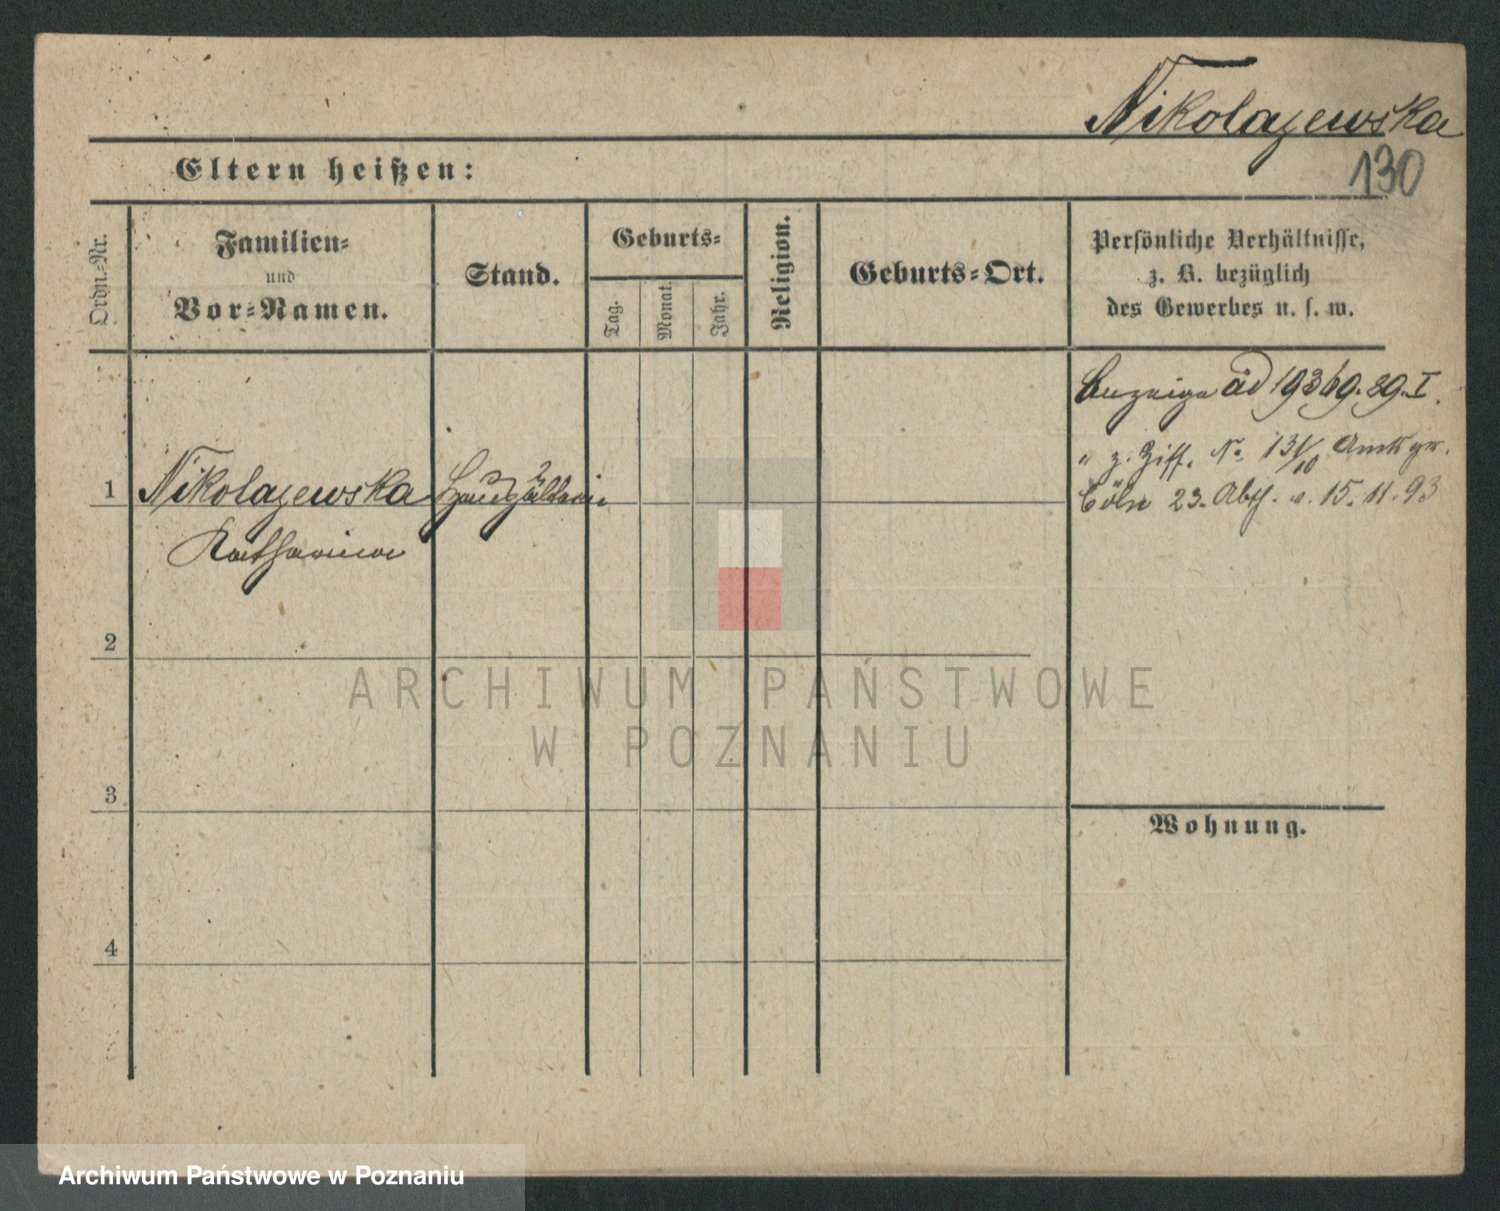 Nikolajewska
130
Eltern heißen:
Ordn.-Nr.
Familien-
und
Vor-Namen.
Stand.
Geburts-
Tag.
Monat.
Jahr.
Religion.
Geburts-Ort.
Persönliche Verhältnisse,
z. B. bezüglich
des Gewerbes u. s. w.
Anzeige ad 19369.89.I.
" z. Ziff. No 131/10 Amtsger.
Cöln 23. Abth. v. 15.11.93
1
Nikolajewska
Haushälterin
Katharina
2
3
4
Wohnung.
ARCHIWUM PAŃSTWOWE
W POZNANIU
Archiwum Państwowe w Poznaniu